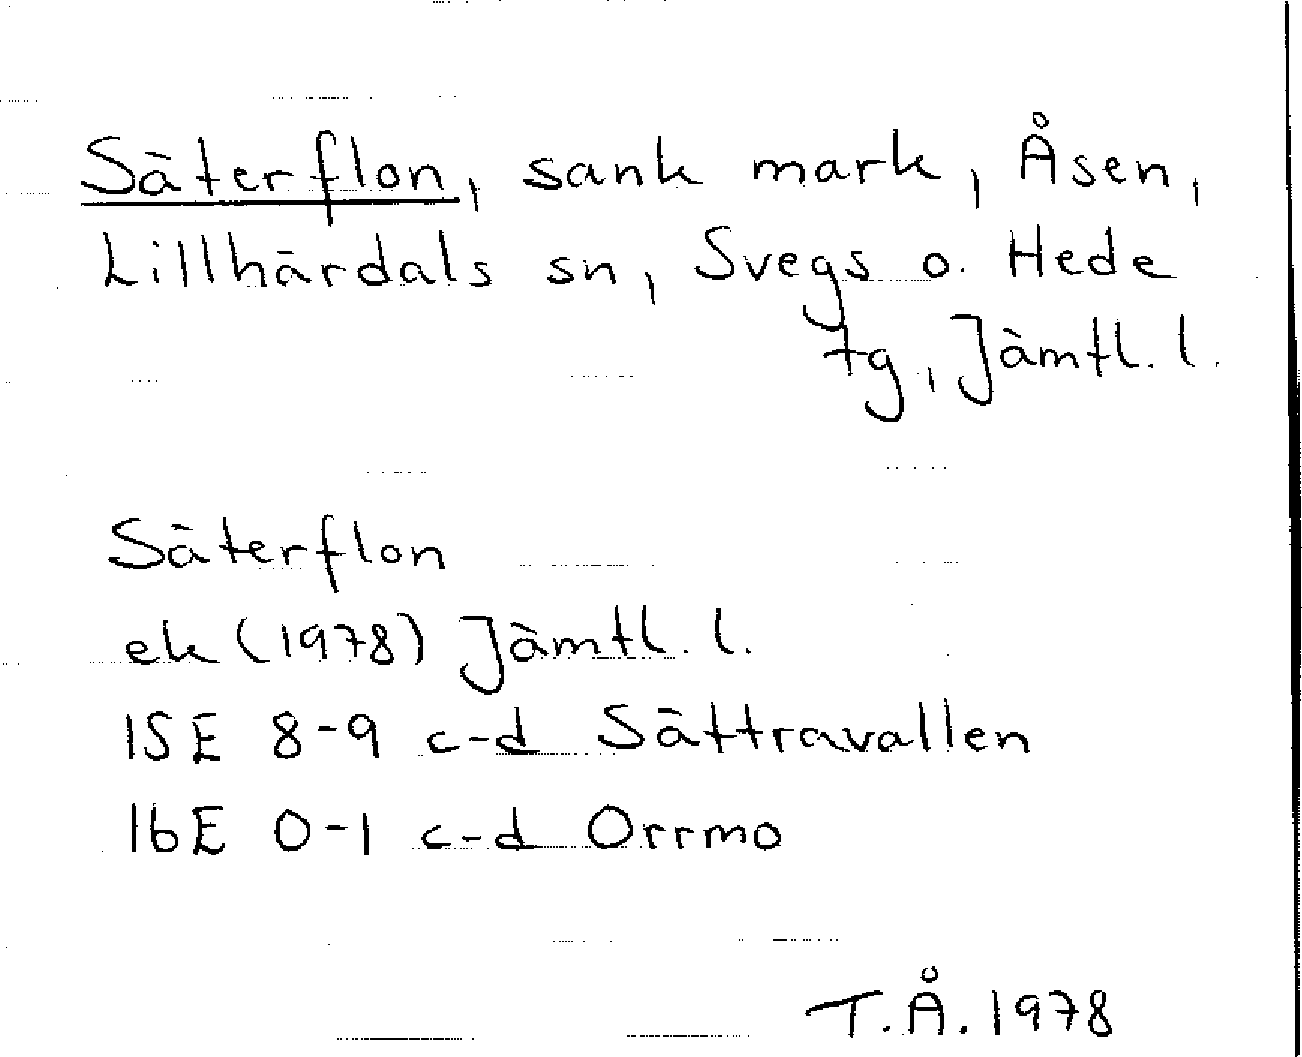 Säterflon, sank mark, Åsen,
Lillhärdals sn, Svegs o. Hede
tg, Jämtl. l.
Säterflon
ek (1978) Jämtl. l.
15E 8-9 c-d Sättravallen
16E 0-1 c-d Orrmo
T.Å. 1978